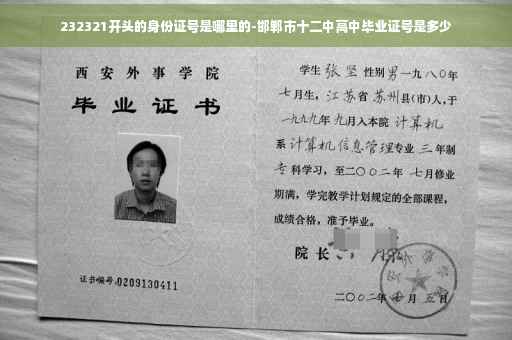 232321开头的身份证号是哪里的-邯郸市十二中高中毕业证号是多少
西安外事学院
毕业证书
证书编号:0209130411
学生 张坚 性别 男 一九八〇年
七月生,江苏省 苏州县(市)人,于
一九九九年 九月入本院 计算机
系 计算机信息管理专业 三 年制
专科学习,至二〇〇二年 七月修业
期满,学完教学计划规定的全部课程,
成绩合格,准予毕业。
院长
二〇〇二年 月 五日